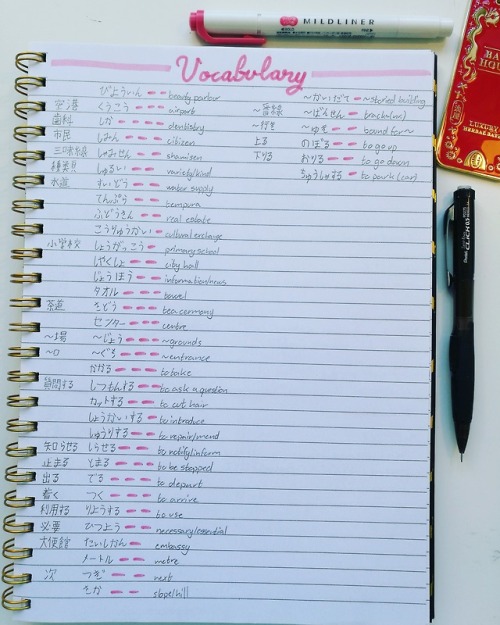 MILDLINER
Vocabulary
びよういん beauty parlour
空港 くうこう airport
歯科 しか dentistry
市民 しみん citizen
三味線 しゃみせん shamisen
種類 しゅるい variety/kind
水道 すいどう water supply
てんぷら tempura
ふどうさん real estate
こうりゅうかい cultural exchange
小学校 しょうがっこう primary school
しやくしょ city hall
じょうほう information/news
タオル towel
茶道 さどう tea ceremony
センター centre
〜場 〜じょう 〜grounds
〜口 〜ぐち 〜entrance
かかる to take
質問する しつもんする to ask a question
カットする to cut hair
しょうかいする to introduce
しゅうりする to repair/mend
知らせる しらせる to notify/inform
止まる とまる to be stopped
出る でる to depart
着く つく to arrive
利用する りようする to use
必要 ひつよう necessary/essential
大使館 たいしかん embassy
メートル metre
次 つぎ next
さか slope/hill
〜かいだて 〜storied building
〜番線 〜ばんせん track(no)
〜行き 〜ゆき bound for〜
上る のぼる to go up
下りる おりる to go down
ちゅうしゃする to park (car)
Pentel CLICK